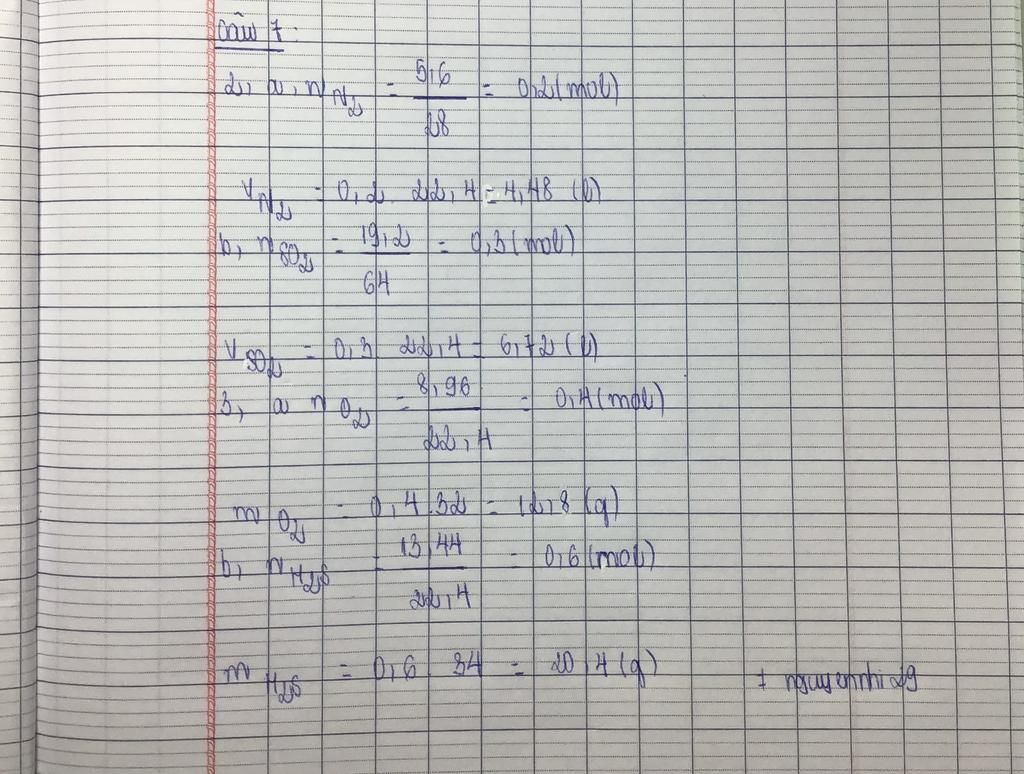 Câu 7:
2, a, n N2 = 5,6 / 28 = 0,2 (mol)
V N2 = 0,2 . 22,4 = 4,48 (l)
b, n SO2 = 19,2 / 64 = 0,3 (mol)
V SO2 = 0,3 22,4 = 6,72 (l)
3, a n O2 = 8,96 / 22,4 = 0,4 (mol)
m O2 = 0,4.32 = 12,8 (g)
b, n H2S = 13,44 / 22,4 = 0,6 (mol)
m H2S = 0,6 34 = 20,4 (g)
nguyennhi29